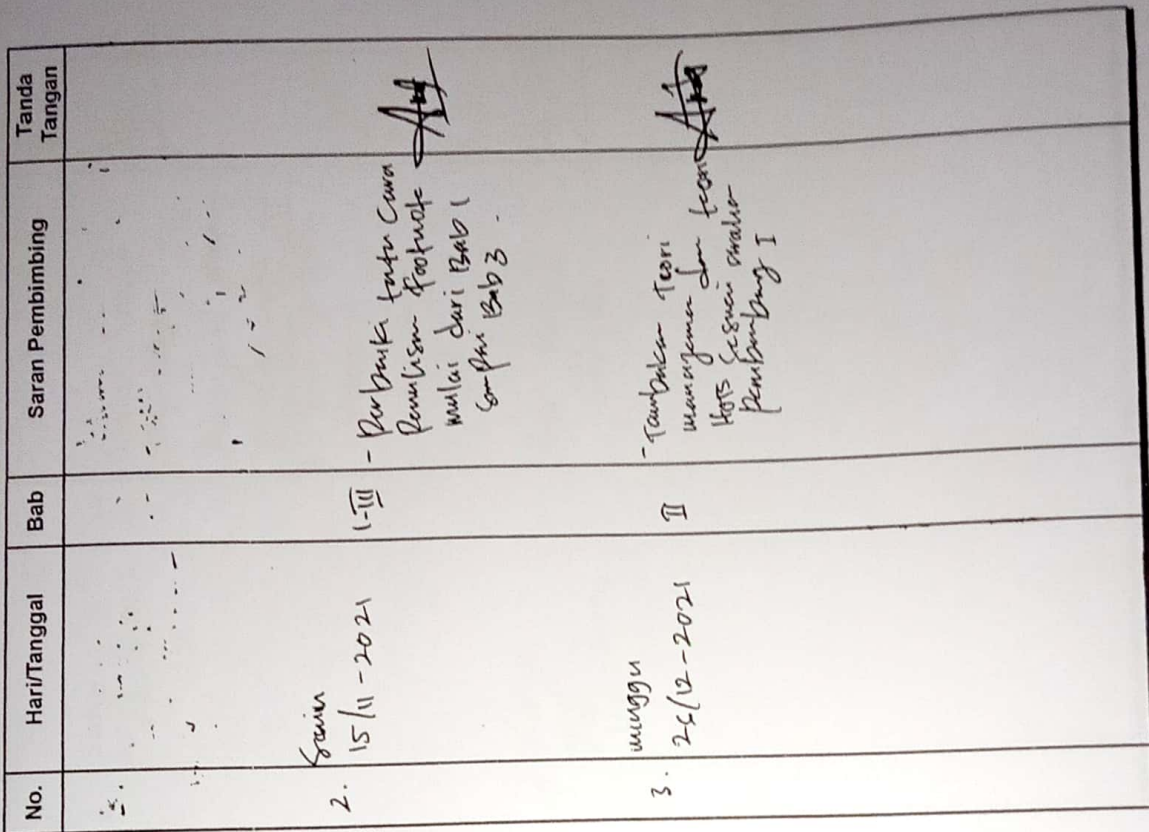 No. Hari/Tanggal Bab Saran Pembimbing Tanda Tangan
2. Senin
15/11-2021
I-III
- Perbaiki tata cara
Penulisan footnote
mulai dari Bab 1
sampai Bab 3.
3. minggu
/12-2021
II
- Tambahkan Teori
manazemen dan teori
Hots sesuai arahan
Pembimbing I